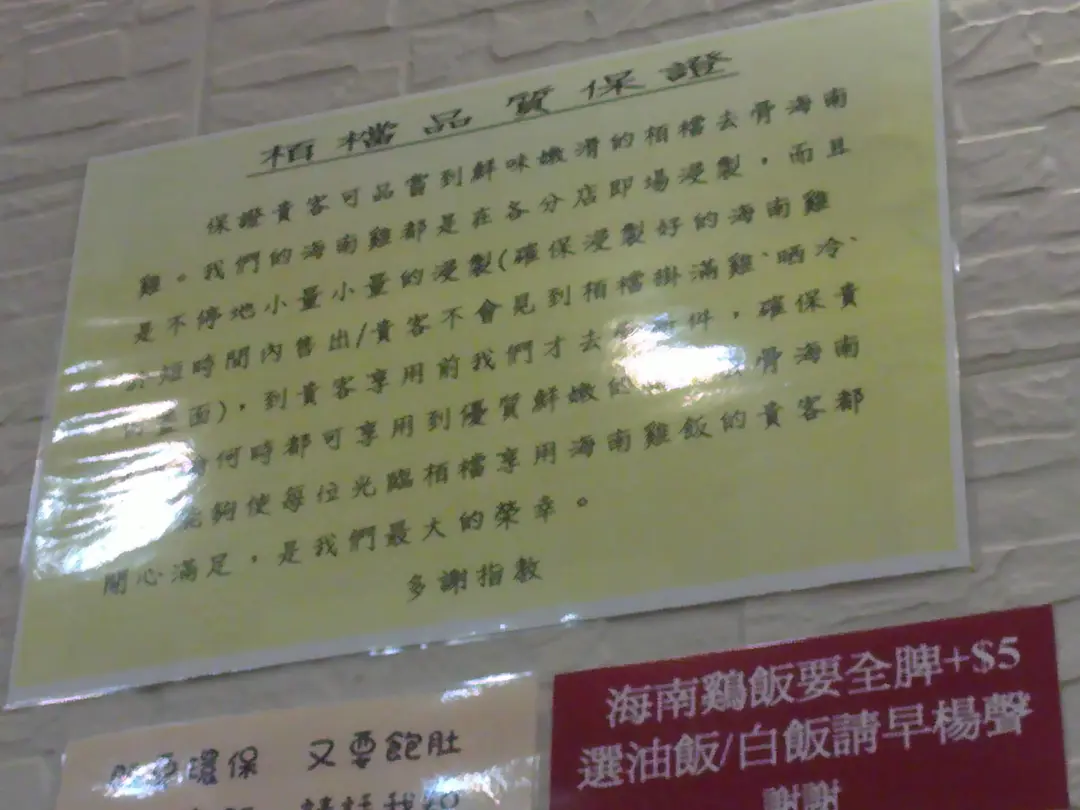 栢檔品質保證
保證貴客可品嘗到鮮味嫩滑的栢檔去骨海南
雞。我們的海南雞都是在各分店即場浸製，而且
是不停地小量小量的浸製(確保浸製好的海南雞
短時間內售出/貴客不會見到栢檔掛滿雞、晒冷、
面)，到貴客享用前我們才去件，確保貴
何時都可享用到優質鮮嫩骨海南
能夠使每位光臨栢檔享用海南雞飯的貴客都
開心滿足，是我們最大的榮幸。
多謝指教
海南鷄飯要全脾+$5
選油飯/白飯請早楊聲
謝謝
環保 又要飽肚